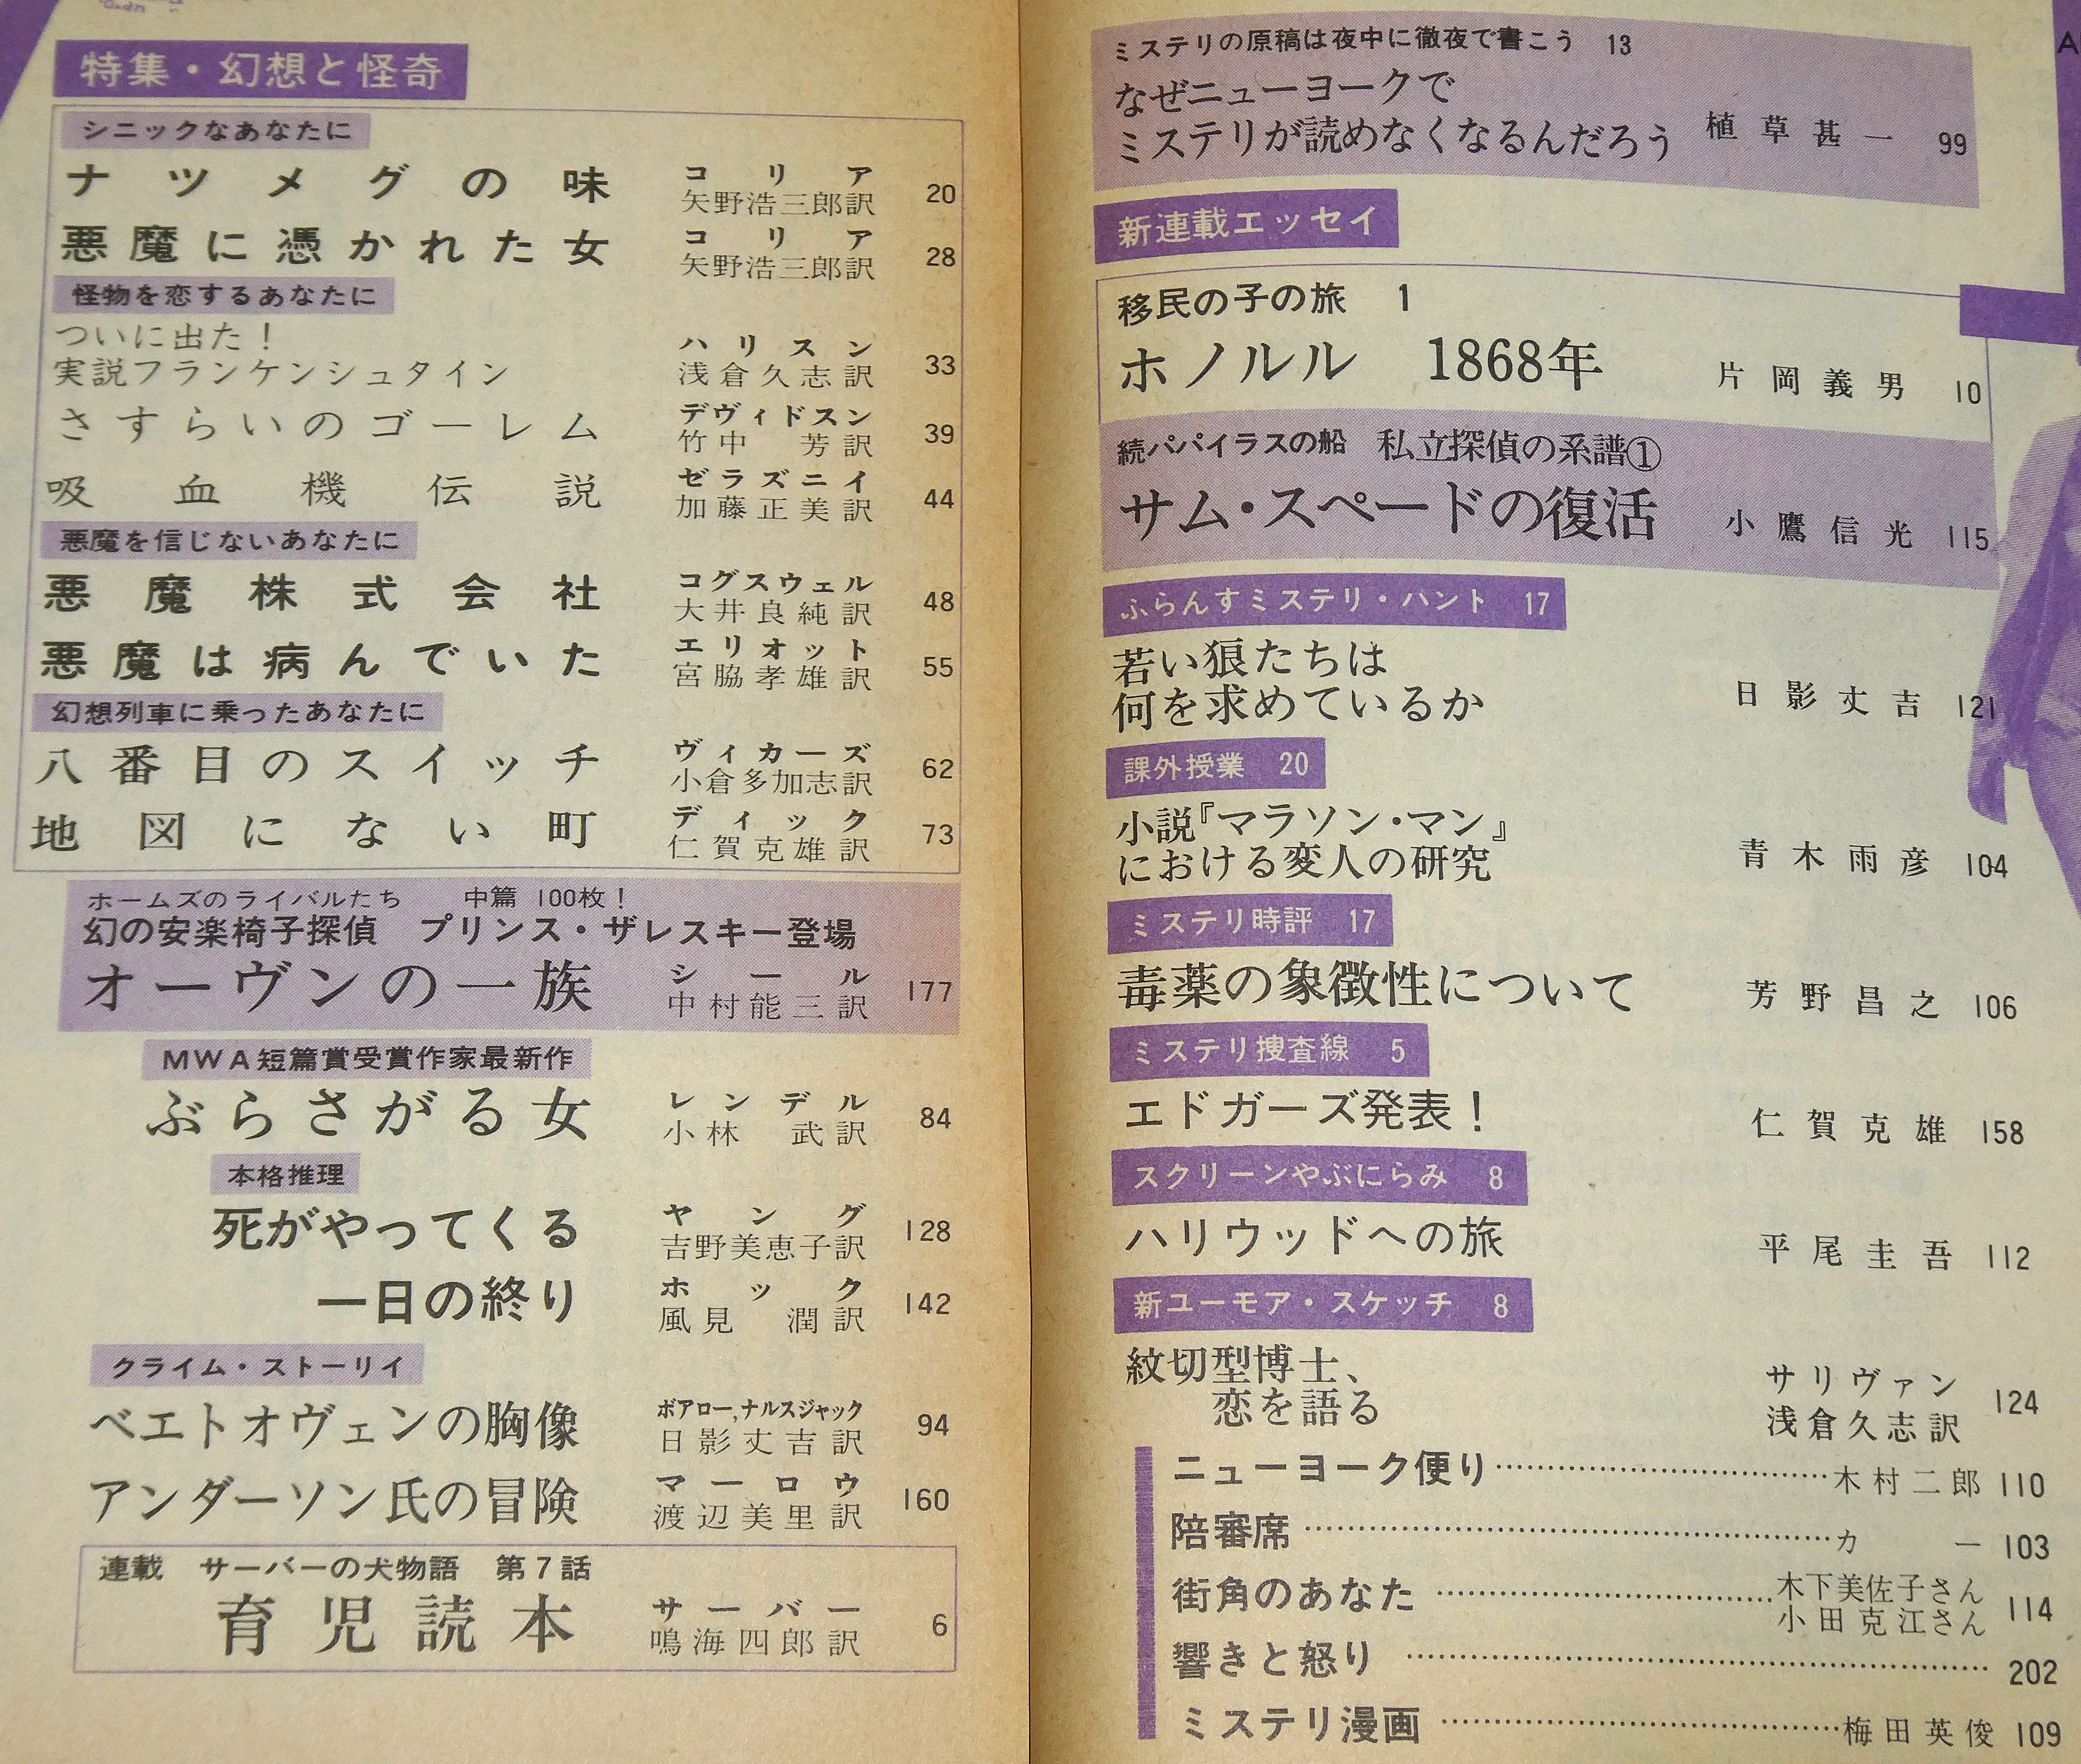 特集・幻想と怪奇
シニックなあなたに
ナツメグの味 コリア 矢野浩三郎訳 20
悪魔に憑かれた女 コリア 矢野浩三郎訳 28
怪物を恋するあなたに
ついに出た!
実説フランケンシュタイン ハリスン 浅倉久志訳 33
さすらいのゴーレム デヴィドスン 竹中 芳訳 39
吸血機伝説 ゼラズニイ 加藤正美訳 44
悪魔を信じないあなたに
悪魔株式会社 コグスウェル 大井良純訳 48
悪魔は病んでいた エリオット 宮脇孝雄訳 55
幻想列車に乗ったあなたに
八番目のスイッチ ヴィカーズ 小倉多加志訳 62
地図にない町 ディック 仁賀克雄訳 73
ホームズのライバルたち 中篇 100枚!
幻の安楽椅子探偵 プリンス・ザレスキー登場
オーヴンの一族 シール 中村能三訳 177
MWA短篇賞受賞作家最新作
ぶらさがる女 レンデル 小林 武訳 84
本格推理
死がやってくる ヤング 吉野美恵子訳 128
一日の終り ホック 風見 潤訳 142
クライム・ストーリイ
ベエトオヴェンの胸像 ボアロー,ナルスジャック 日影丈吉訳 94
アンダーソン氏の冒険 マーロウ 渡辺美里訳 160
連載 サーバーの犬物語 第7話
育児読本 サーバー 鳴海四郎訳 6
ミステリの原稿は夜中に徹夜で書こう 13
なぜニューヨークで
ミステリが読めなくなるんだろう 植草甚一 99
新連載エッセイ
移民の子の旅 1
ホノルル 1868年 片岡義男 10
続パパイラスの船 私立探偵の系譜①
サム・スペードの復活 小鷹信光 115
ふらんすミステリ・ハント 17
若い狼たちは
何を求めているか 日影丈吉 121
課外授業 20
小説『マラソン・マン』
における変人の研究 青木雨彦 104
ミステリ時評 17
毒薬の象徴性について 芳野昌之 106
ミステリ捜査線 5
エドガーズ発表! 仁賀克雄 158
スクリーンやぶにらみ 8
ハリウッドへの旅 平尾圭吾 112
新ユーモア・スケッチ 8
紋切型博士、
恋を語る サリヴァン 浅倉久志訳 124
ニューヨーク便り 木村二郎 110
陪審席 カー 103
街角のあなた 木下美佐子さん 小田克江さん 114
響きと怒り 202
ミステリ漫画 梅田英俊 109